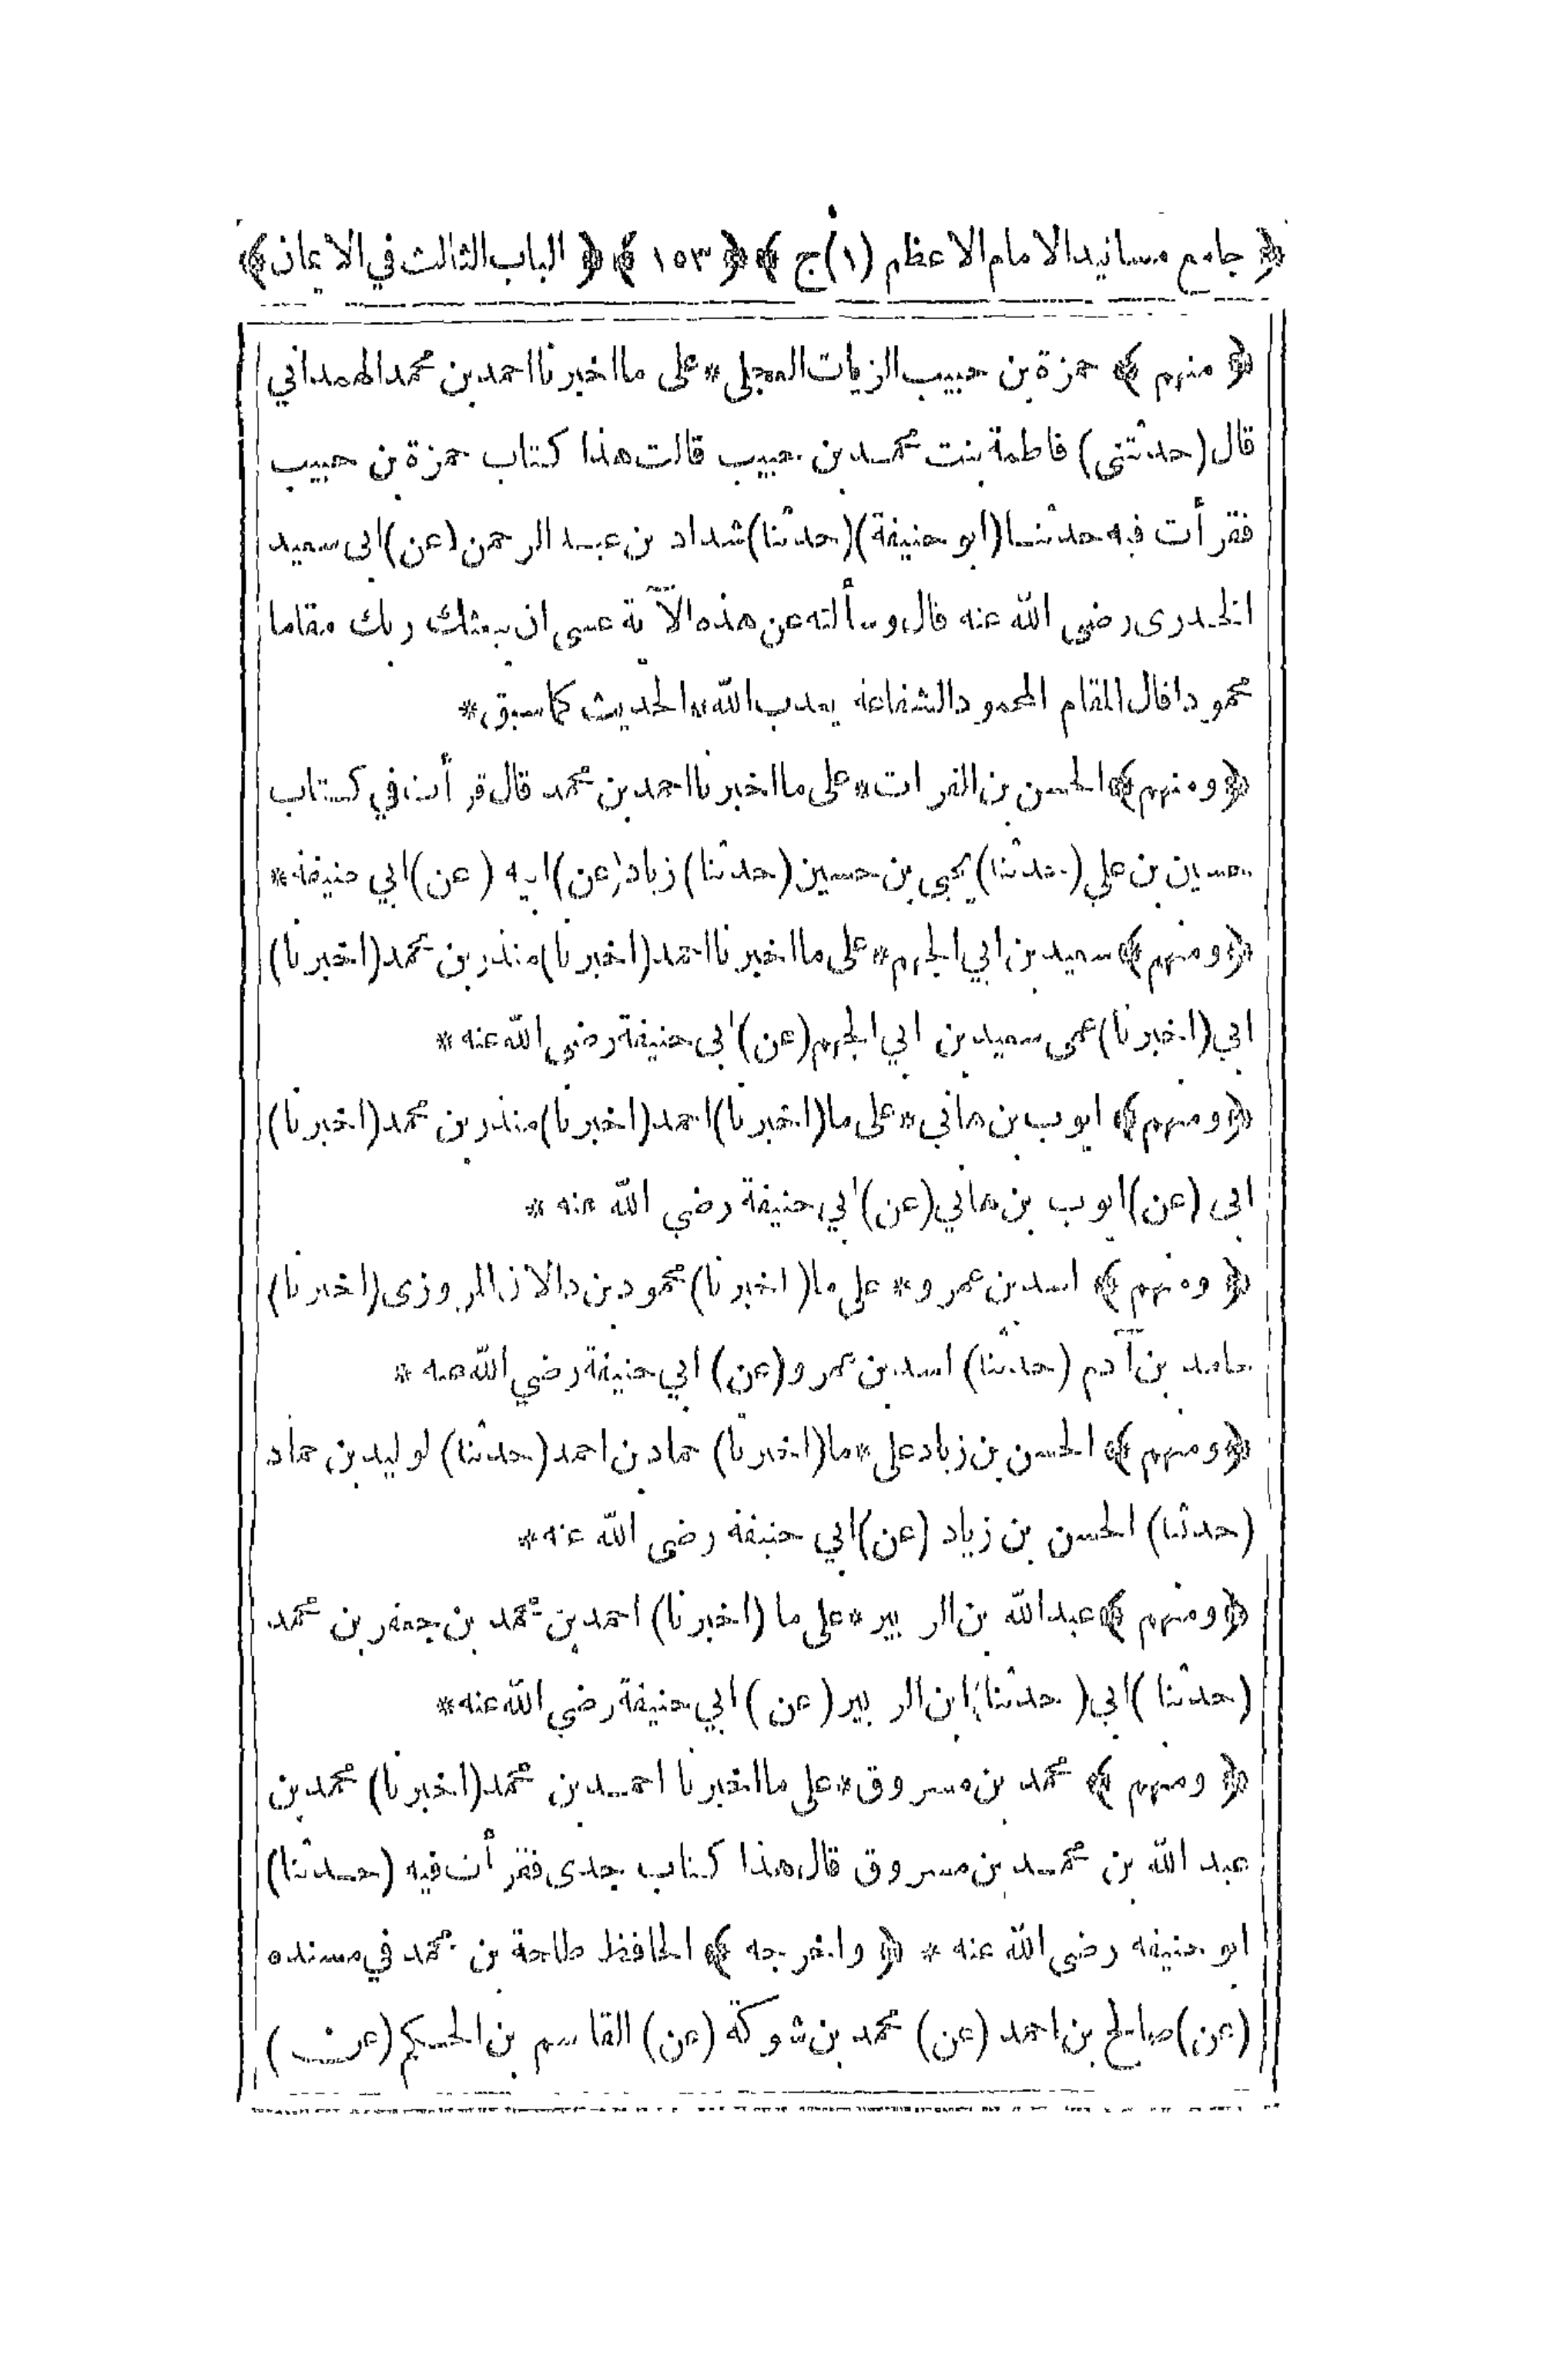 ﴿ جامع مسانيد الامام الاعظم (١) ج ﴾ ﴿ ١٥٣ ﴾ ﴿ الباب الثالث في الايمان ﴾
﴿ منهم ﴾ حمزة بن حبيب الزيات العجلي * على ما اخبرنا احمد بن محمد الهمداني
قال (حدثتني) فاطمة بنت محمد بن حبيب قالت هذا كتاب حمزة بن حبيب
فقرأت فيه حدثنا (ابو حنيفة) (حدثنا) شداد بن عبد الرحمن (عن) ابى سعيد
الخدرى رضى الله عنه قال وسألته عن هذه الآية عسى ان يبعثك ربك مقاما
محمودا قال المقام المحمود الشفاعة يعذب الله * الحديث كما سبق *
﴿ ومنهم ﴾ الحسن بن الفرات * على ما اخبرنا احمد بن محمد قال قرأت في كتاب
حسين بن علي (حدثنا) يحيى بن حسين (حدثنا) زياد (عن) ابيه (عن) ابي حنيفة *
﴿ ومنهم ﴾ سعيد بن ابي الجهم * على ما اخبرنا احمد (اخبرنا) منذر بن محمد (اخبرنا)
ابي (اخبرنا) عمى سعيد بن ابي الجهم (عن) ابي حنيفة رضى الله عنه *
﴿ ومنهم ﴾ ايوب بن هاني * على ما (اخبرنا) احمد (اخبرنا) منذر بن محمد (اخبرنا)
ابى (عن) ايوب بن هاني (عن) ابي حنيفة رضي الله عنه *
﴿ ومنهم ﴾ اسد بن عمرو * على ما (اخبرنا) محمود بن دالاز المروزى (اخبرنا)
حامد بن آدم (حدثنا) اسد بن عمرو (عن) ابي حنيفة رضي الله عنه *
﴿ ومنهم ﴾ الحسن بن زياد على * ما (اخبرنا) حماد بن احمد (حدثنا) لوليد بن حماد
(حدثنا) الحسن بن زياد (عن) ابي حنيفة رضى الله عنه *
﴿ ومنهم ﴾ عبد الله بن الزبير * على ما (اخبرنا) احمد بن محمد بن جعفر بن محمد
(حدثنا) ابي (حدثنا) ابن الزبير (عن) ابي حنيفة رضي الله عنه *
﴿ ومنهم ﴾ محمد بن مسروق * على ما اخبرنا احمد بن محمد (اخبرنا) محمد بن
عبد الله بن محمد بن مسروق قال هذا كتاب جدى فقرأت فيه (حدثنا)
ابو حنيفه رضى الله عنه * ﴿ واخرجه ﴾ الحافظ طلحة بن محمد في مسنده
(عن) صالح بن احمد (عن) محمد بن شوكة (عن) القاسم بن الحكم (عن)